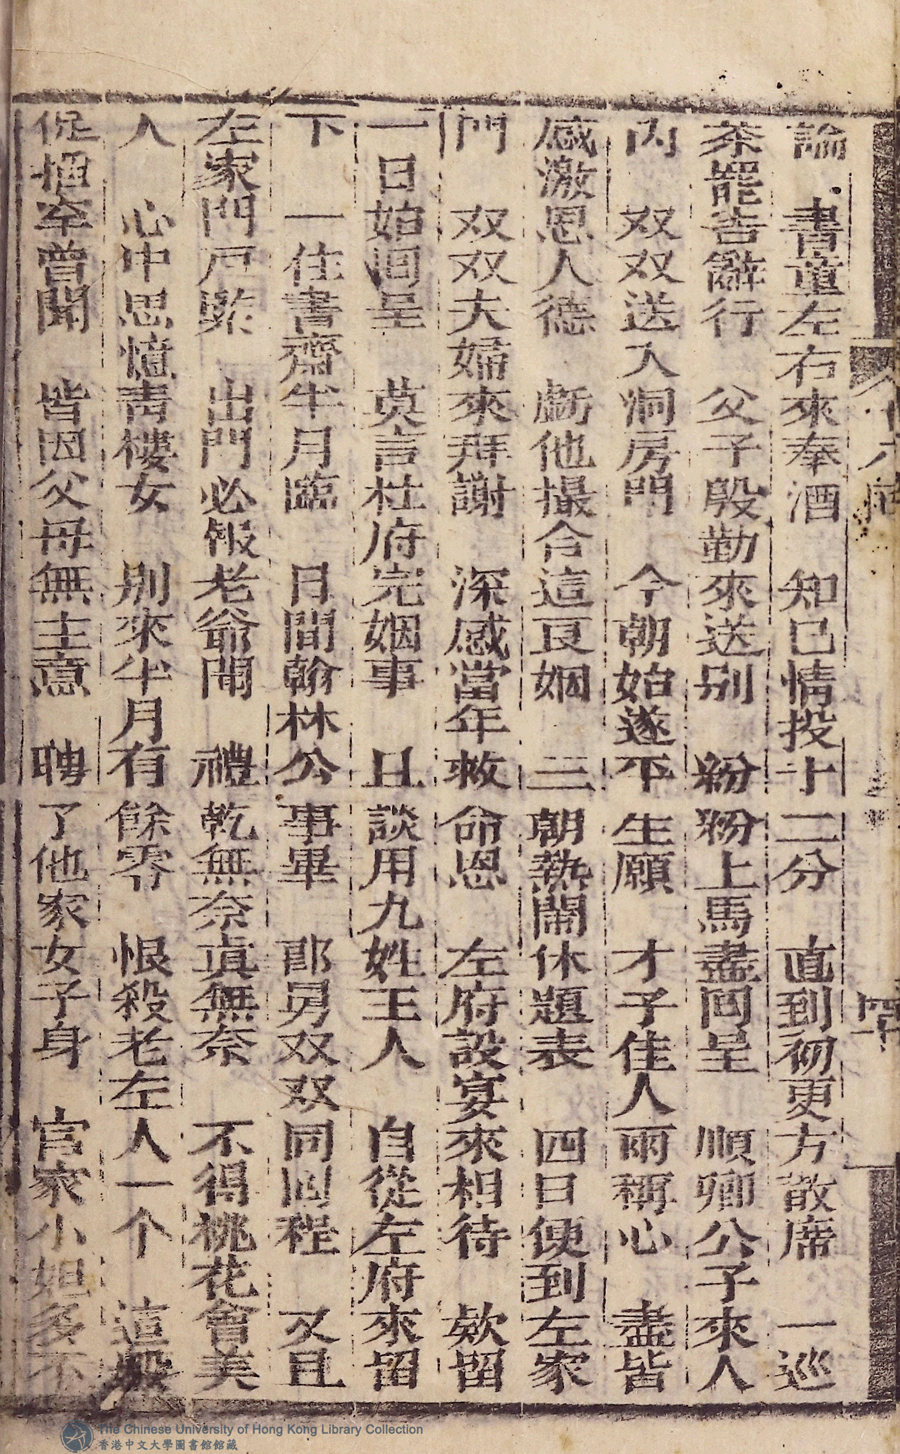 論　書童左右來奉酒　知己情投十二分　直到初更方散席　一巡
茶罷告辭行　父子殷勤來送别　紛紛上馬盡回呈　順卿公子來人
内　双双送入洞房門　今朝始遂平生願　才子佳人兩稱心　盡皆
感激恩人德　虧他撮合這良姻　三朝熱鬧休題表　四日便到左家
門　双双夫婦來拜謝　深感當年救命恩　左府設宴來相待　欵留
一日始回呈　莫言杜府完姻事　且談用九姓王人　自從左府來留
下　一住書齋半月臨　月間翰林公事畢　郎舅双双同回程　又且
左家門戸緊　出門必報老爺聞　禮乾無奈真無奈　不得桃花會美
人　心中思憶青樓女　别來半月有餘零　恨殺老左人一个　這般
促搯牽曾聞　皆因父母無主意　聘了他家女子身　官家小姐多不
The Chinese University of Hong Kong Library Collection
香港中文大學圖書館館藏